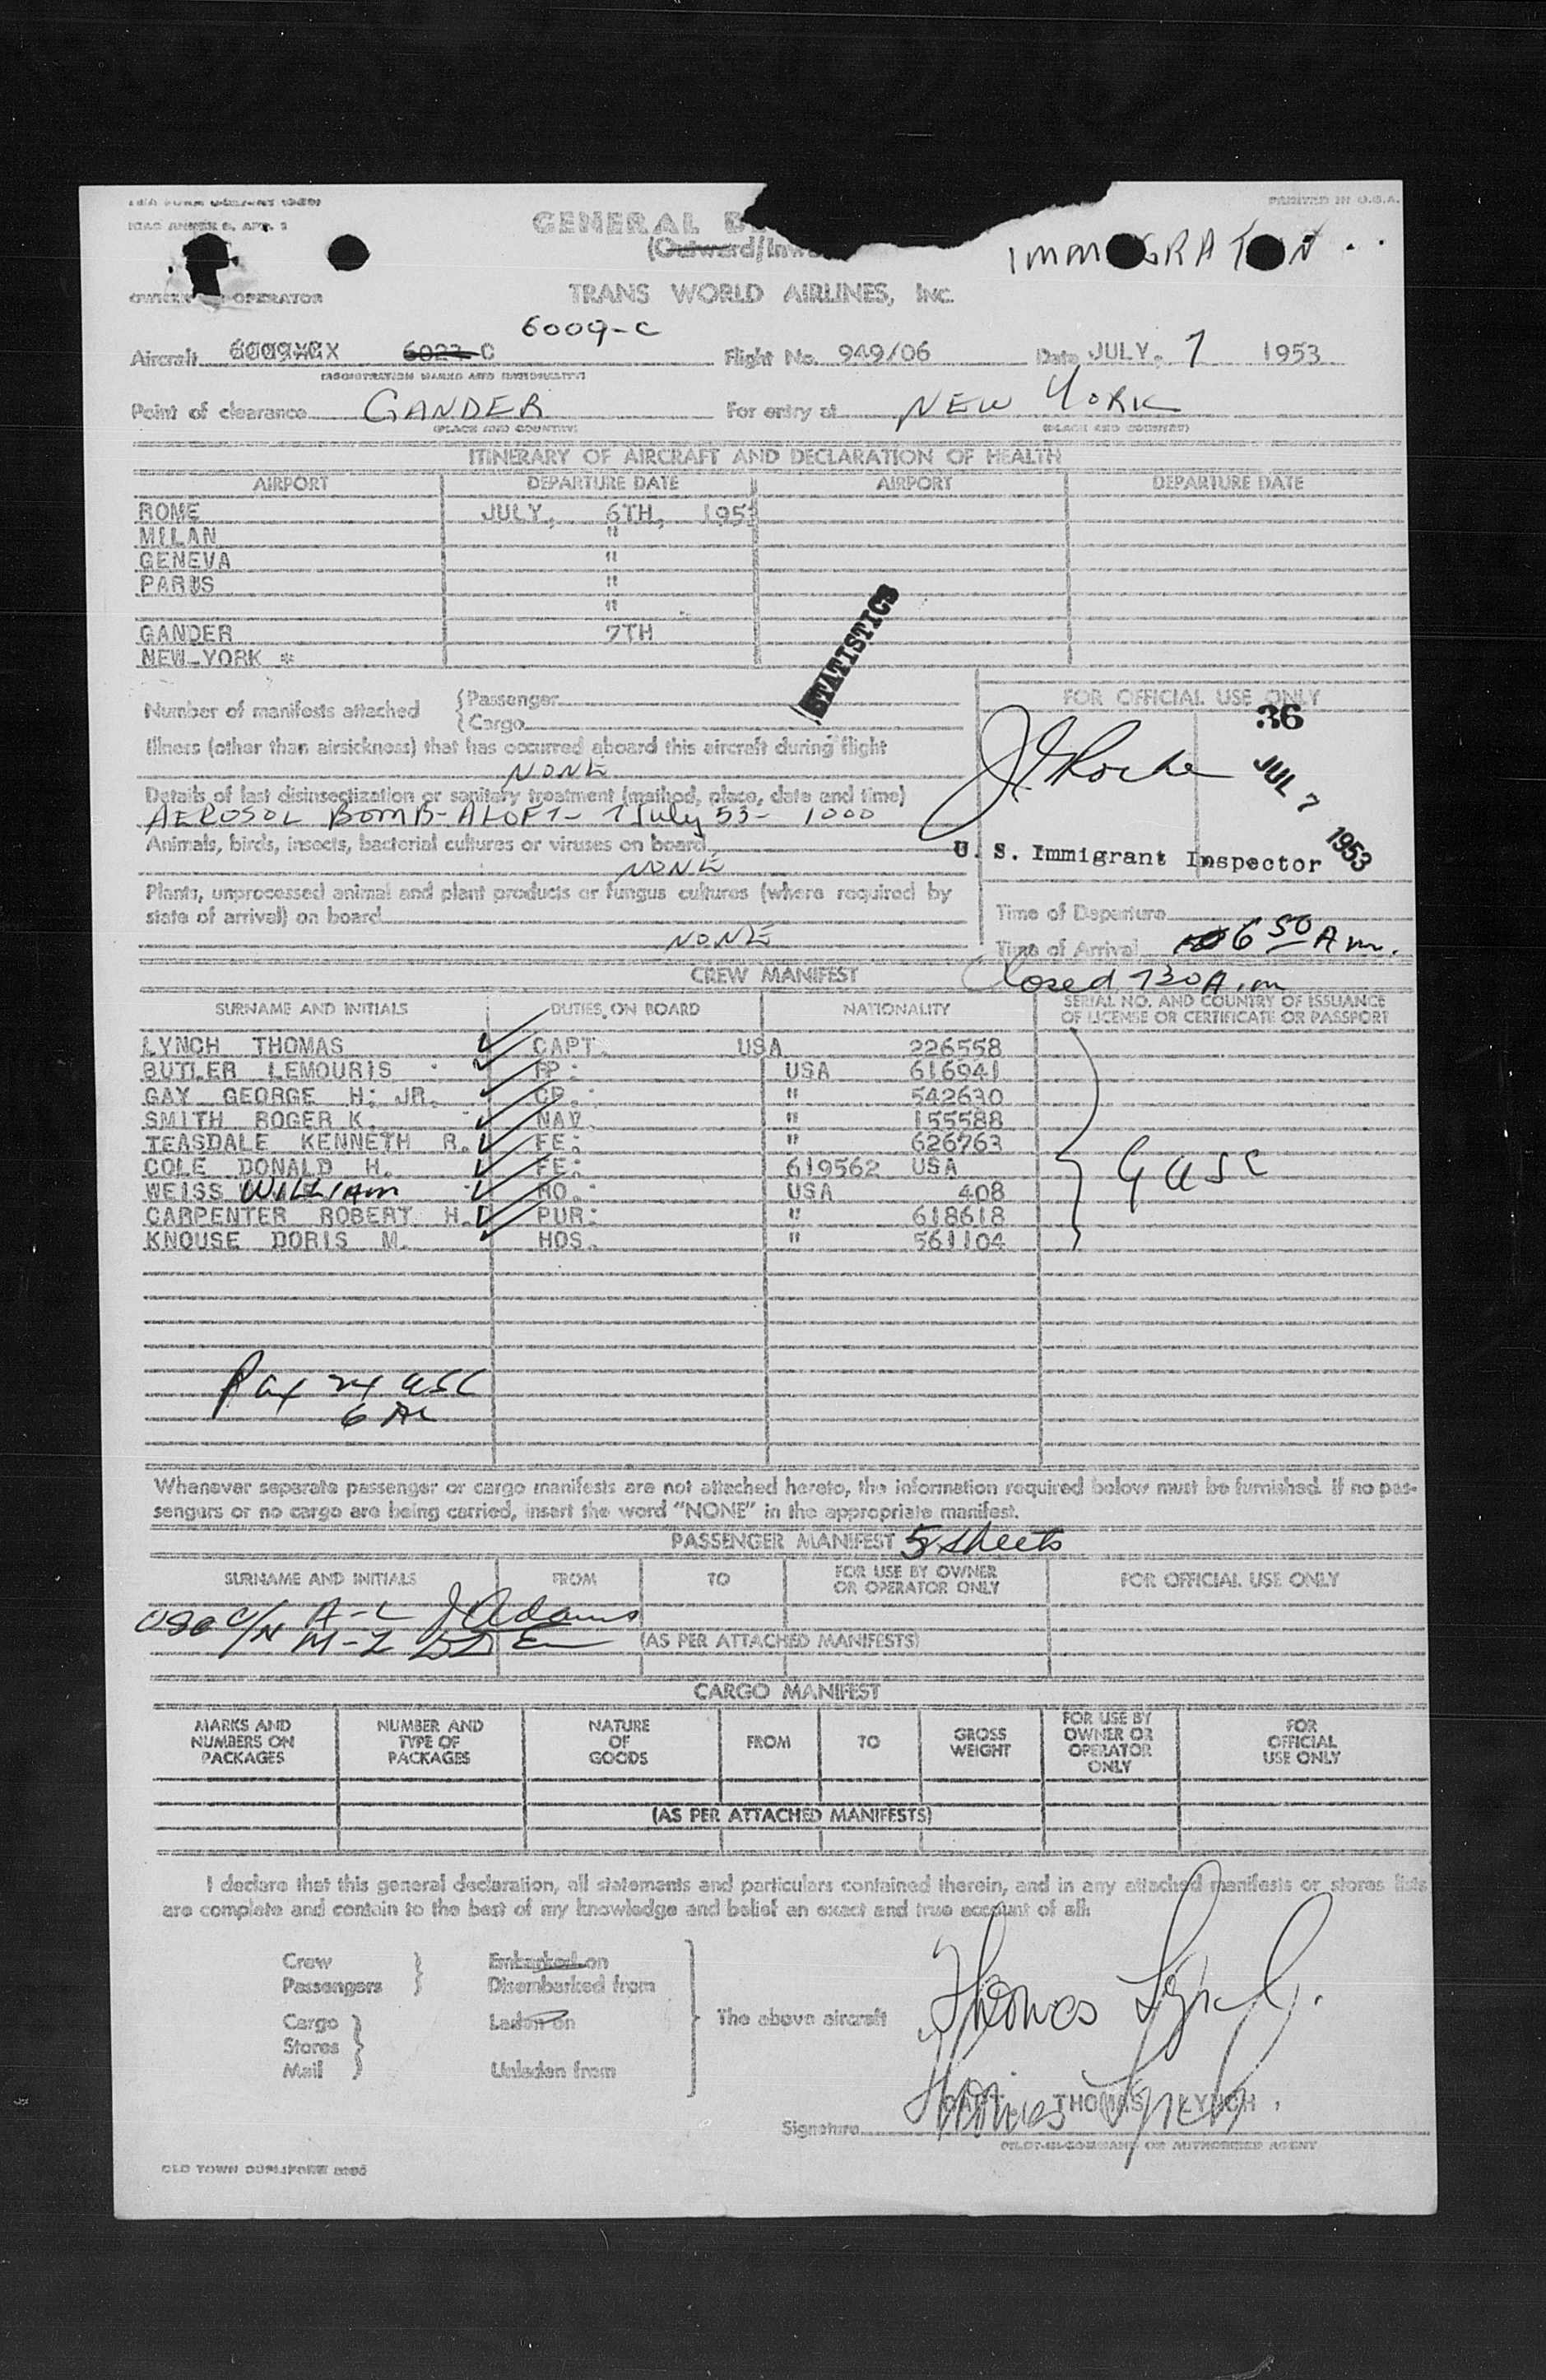 ICAO ANNEX 9, APP. 1
PRINTED IN U.S.A.
GENERAL
(Outward/Inw
IMMIGRATION
OPERATOR
TRANS WORLD AIRLINES, Inc.
6009-C
Aircraft 6023-C Flight No. 949/06 Date JULY, 7 1953
(REGISTRATION MARKS AND NATIONALITY)
Point of clearance GANDER For entry at NEW YORK
(PLACE AND COUNTRY) (PLACE AND COUNTRY)
ITINERARY OF AIRCRAFT AND DECLARATION OF HEALTH
AIRPORT DEPARTURE DATE AIRPORT DEPARTURE DATE
ROME JULY, 6TH, 1953
MILAN "
GENEVA "
PARIS "
"
GANDER 7TH
NEW YORK *
STATISTICS
Number of manifests attached {Passenger
{Cargo
FOR OFFICIAL USE ONLY
36
JUL 7 1953
Illness (other than airsickness) that has occurred aboard this aircraft during flight
NONE
Details of last disinsectization or sanitary treatment (method, place, date and time)
AEROSOL BOMB-ALOFT- 7 July 53- 1000
Animals, birds, insects, bacterial cultures or viruses on board
NONE
U. S. Immigrant Inspector
Plants, unprocessed animal and plant products or fungus cultures (where required by
state of arrival) on board
NONE
Time of Departure
Time of Arrival 6 50 Am.
Closed 730 A.m
CREW MANIFEST
SURNAME AND INITIALS DUTIES ON BOARD NATIONALITY SERIAL NO. AND COUNTRY OF ISSUANCE
OF LICENSE OR CERTIFICATE OR PASSPORT
LYNCH THOMAS CAPT. USA 226558
BUTLER LEMOURIS FP: USA 616941
GAY GEORGE H: JR. CP.: " 542630
SMITH ROGER K. NAV. " 155588
TEASDALE KENNETH R. FE: " 626763
COLE DONALD H. FE: 619562 USA
WEISS WILLIAM RO.: USA 408
CARPENTER ROBERT H. PUR: " 618618
KNOUSE DORIS M. HOS. " 561104
9 USC
Pax 24 USC
6 Al
Whenever separate passenger or cargo manifests are not attached hereto, the information required below must be furnished. If no pas-
sengers or no cargo are being carried, insert the word "NONE" in the appropriate manifest.
PASSENGER MANIFEST 5 sheets
SURNAME AND INITIALS FROM TO FOR USE BY OWNER
OR OPERATOR ONLY FOR OFFICIAL USE ONLY
A-L J Adams
M-Z
(AS PER ATTACHED MANIFESTS)
CARGO MANIFEST
MARKS AND
NUMBERS ON
PACKAGES
NUMBER AND
TYPE OF
PACKAGES
NATURE
OF
GOODS
FROM
TO
GROSS
WEIGHT
FOR USE BY
OWNER OR
OPERATOR
ONLY
FOR
OFFICIAL
USE ONLY
(AS PER ATTACHED MANIFESTS)
I declare that this general declaration, all statements and particulars contained therein, and in any attached manifests or stores lists
are complete and contain to the best of my knowledge and belief an exact and true account of all:
Crew } Embarked on
Passengers } Disembarked from
Cargo } Laden on
Stores }
Mail } Unladen from
The above aircraft
Thomas Lynch.
Thomas Lynch
CAPT. THOMAS LYNCH.
Signature
PILOT-IN-COMMAND OR AUTHORIZED AGENT
OLD TOWN DUPLIFORM